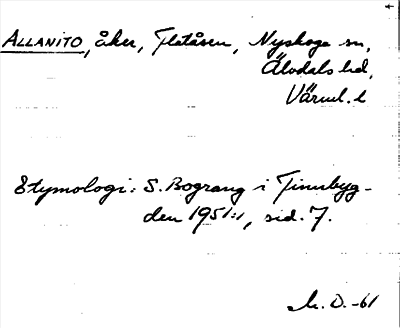 ALLANITO, åker, Flatåsen, Nyskoga sn,
Älvdals hd,
Värml. l
Etymologi: S. Bograng i Finnbyg-
den 1951:1, sid. 7.
M. O. -61